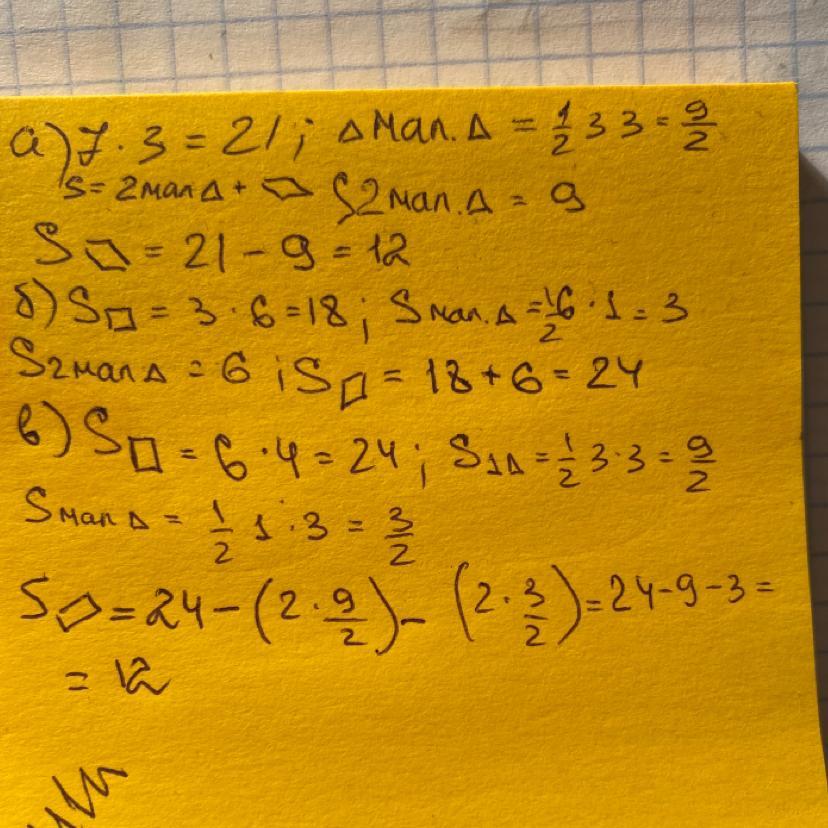 а) 7 · 3 = 21; △ мал. △ = 1/2 3 3 = 9/2
S = 2 мал △ + ▱ S 2 мал. △ = 9
S ▱ = 21 - 9 = 12
б) S □ = 3 · 6 = 18; S мал. △ = 1/2 6 · 1 = 3
S 2 мал △ = 6; S ▱ = 18 + 6 = 24
в) S □ = 6 · 4 = 24; S 1△ = 1/2 3 · 3 = 9/2
S мал △ = 1/2 1 · 3 = 3/2
S ▱ = 24 - (2 · 9/2) - (2 · 3/2) = 24 - 9 - 3 =
= 12